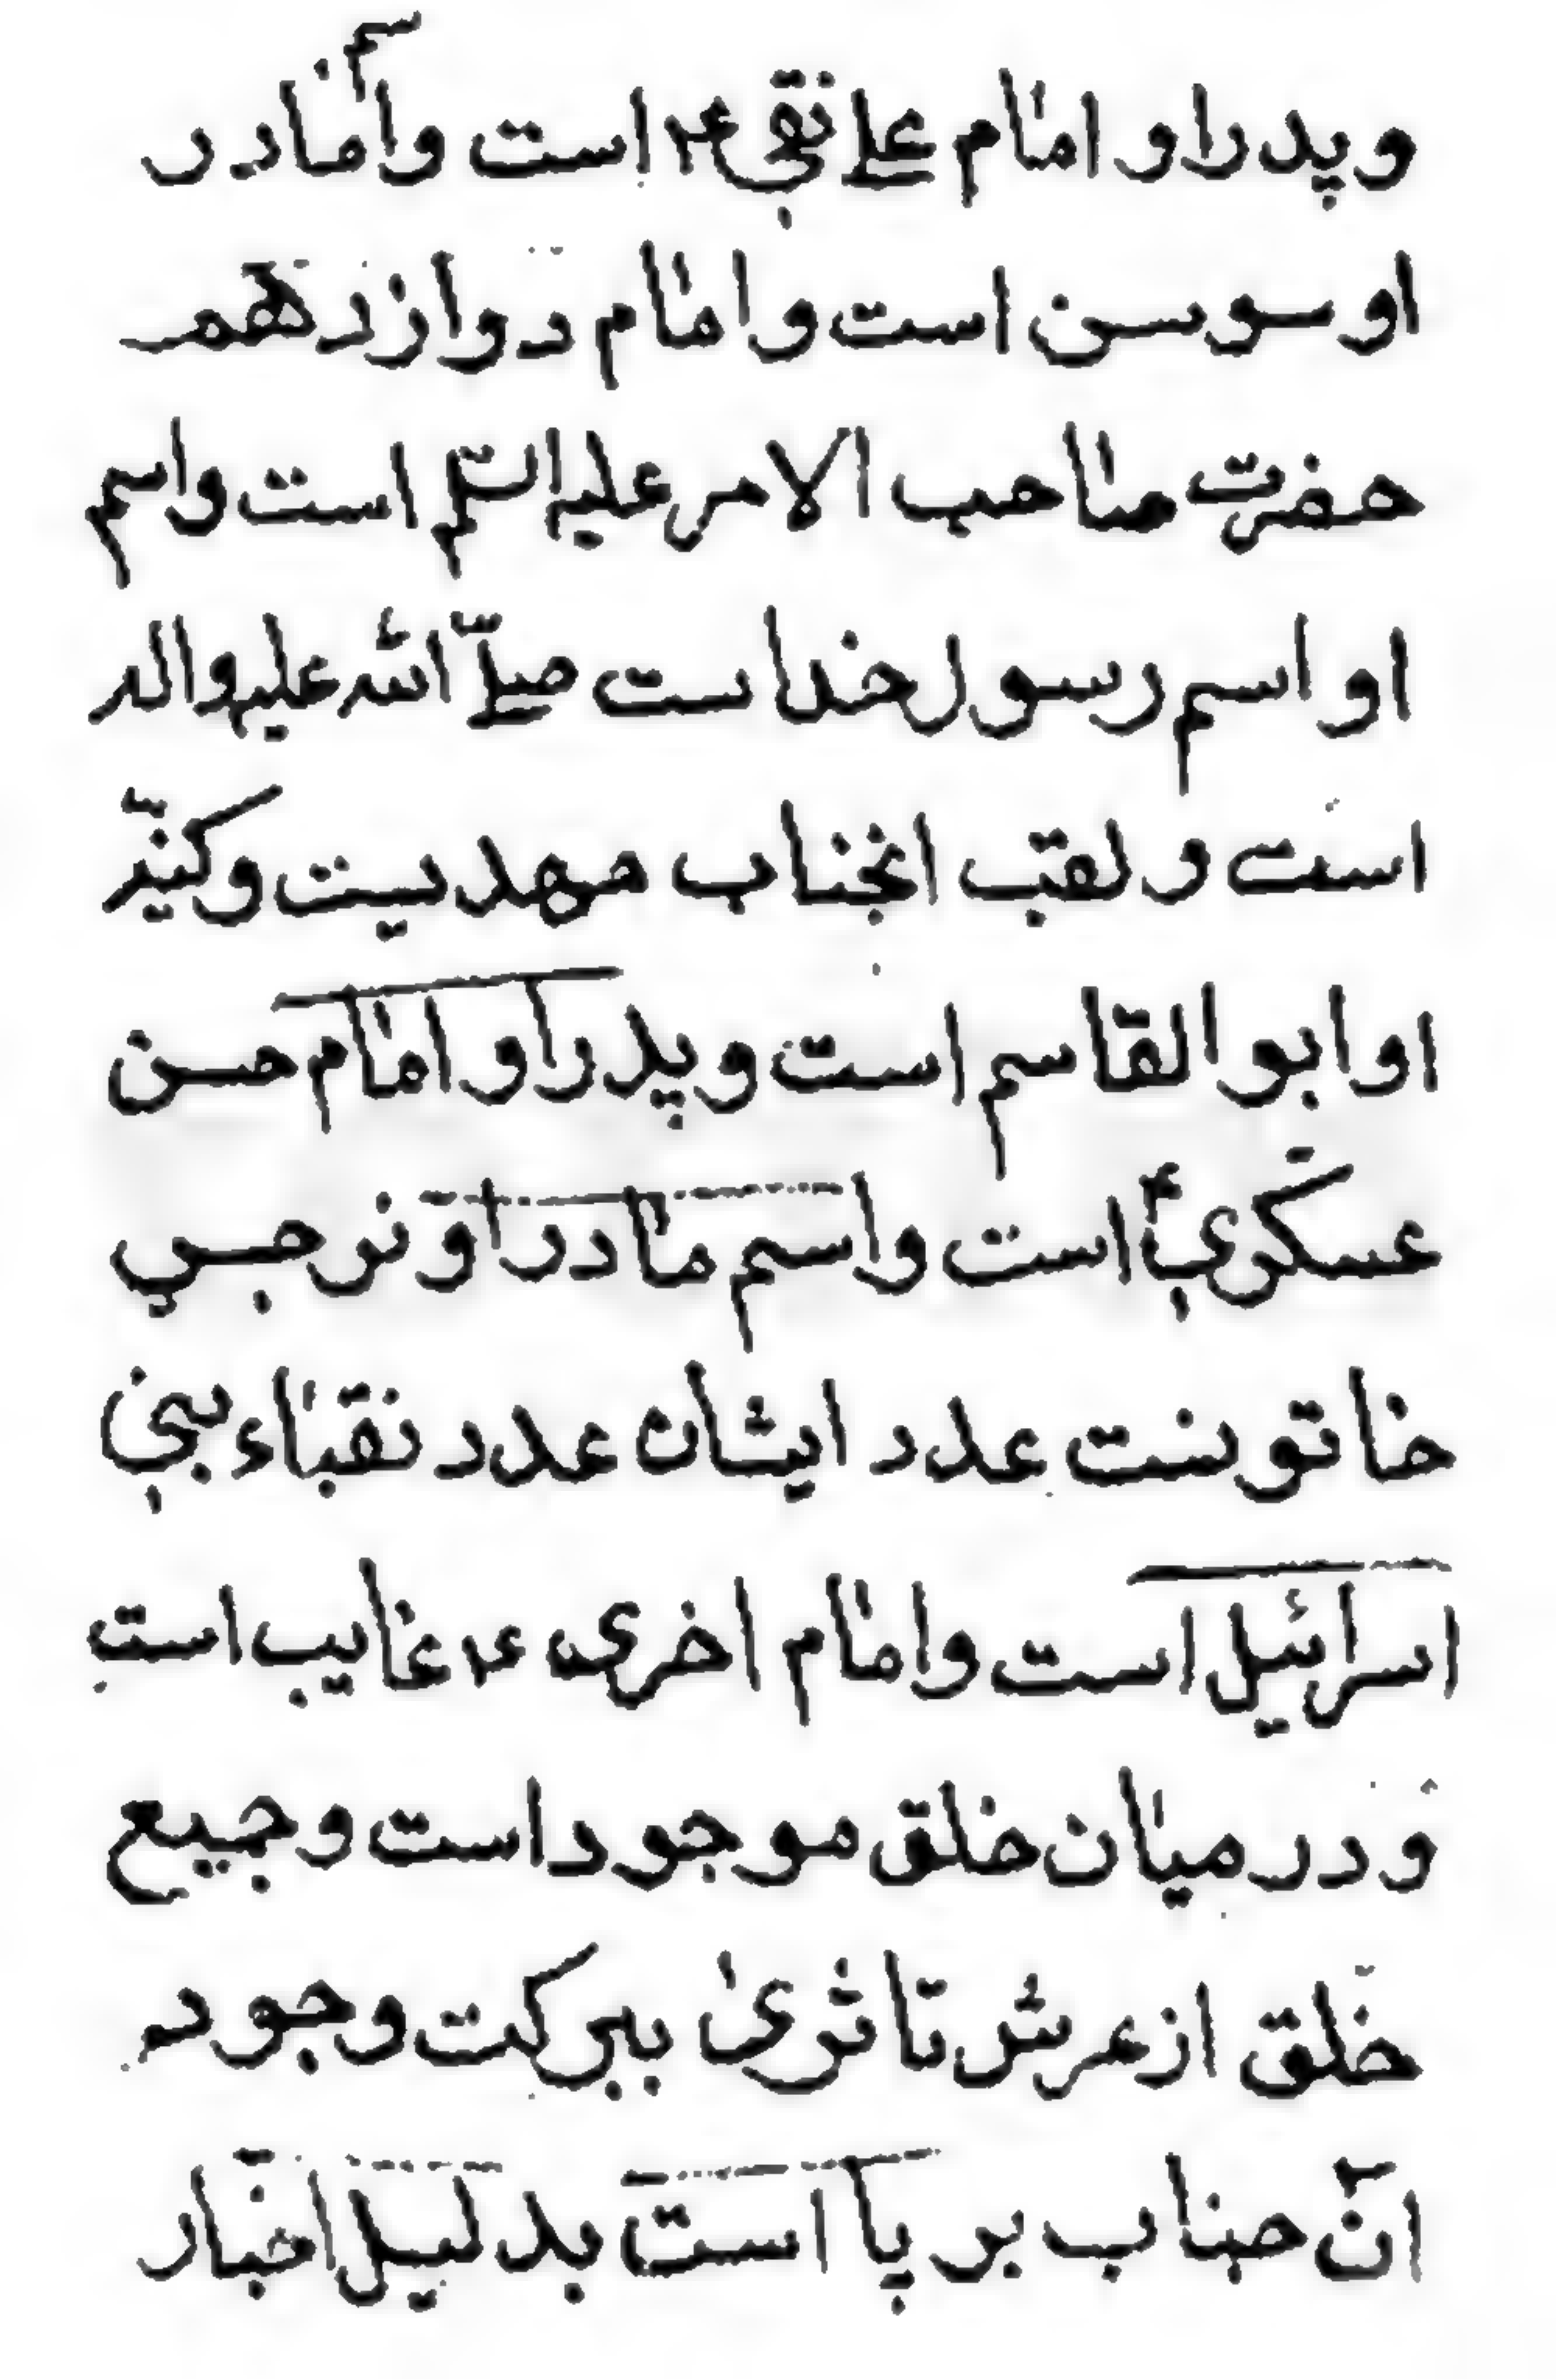 و پدر او امام علی نقی ع م است و اسم مادر
او سوسن است و امام دوازدهم
حضرت صاحب الامر علیه السّلم است و اسم
او اسم رسول خداست صلّی الله علیه واله
است و لقب انجناب مهدیست و کنیّه
او ابو القاسم است و پدر او امام حسن
عسکری ع است و اسم مادر او نرجس
خاتونست عدد ایشان عدد نقباء بنی
اسرائیل است و امام اخری ع م غایب است
و در میان خلق موجود است و جمیع
خلق از عرش تا ثری ببرکت وجود
ان جناب بر پا است بدلیل اخبار